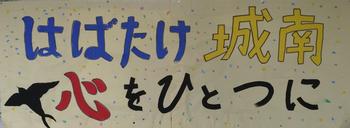 はばたけ 城南
心をひとつに